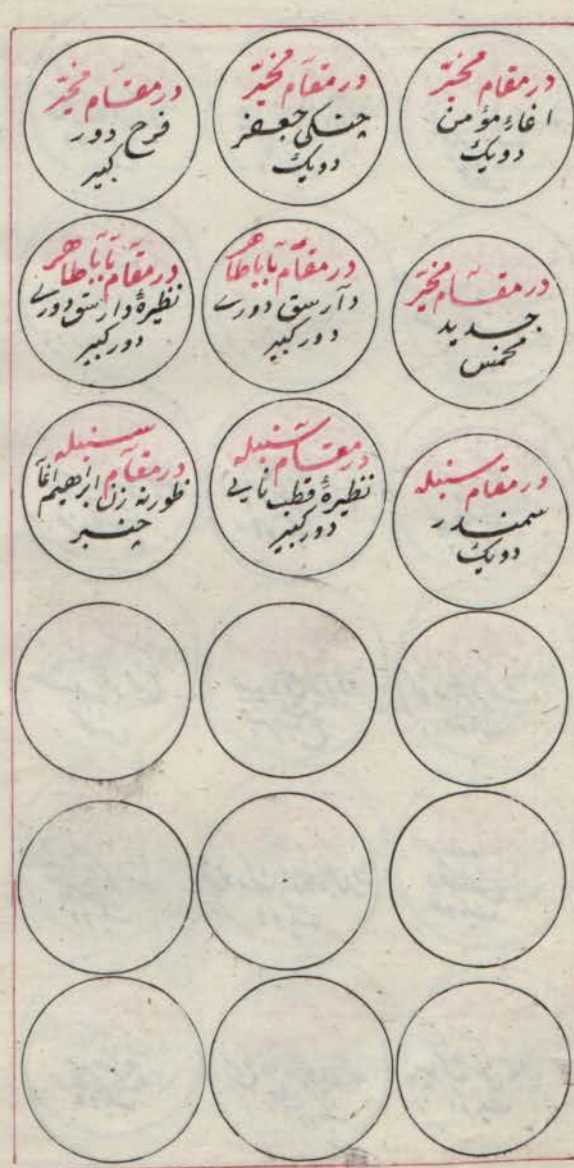 در مقام مخیر
اغای مؤمن
دویک
در مقام مخیر
چنکی جعفر
دویک
در مقام مخیر
فرح دور
کبیر
در مقام مخیر
جدید
مخمس
در مقام باباطاهر
دآرستق دوری
دور کبیر
در مقام باباطاهر
نظیرهٔ دارستق دوری
دور کبیر
در مقام سنبله
سمندر
دویک
در مقام سنبله
نظیرهٔ قطب نایی
دور کبیر
در مقام سنبله
طورنه زن ابراهیم اغا
چنبر